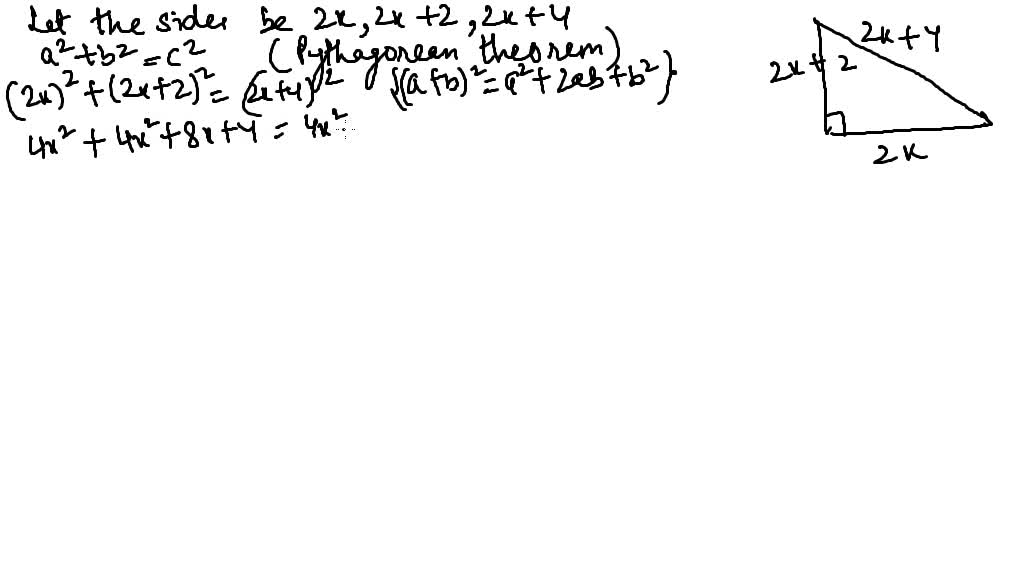 Let the sides be 2x, 2x+2, 2x+4
a²+b²=c² (Pythagorean theorem)
(2x)²+(2x+2)²=(2x+4)² {(a+b)²=a²+2ab+b²}
4x²+4x²+8x+4=4x²
2x+4
2x+2
2x